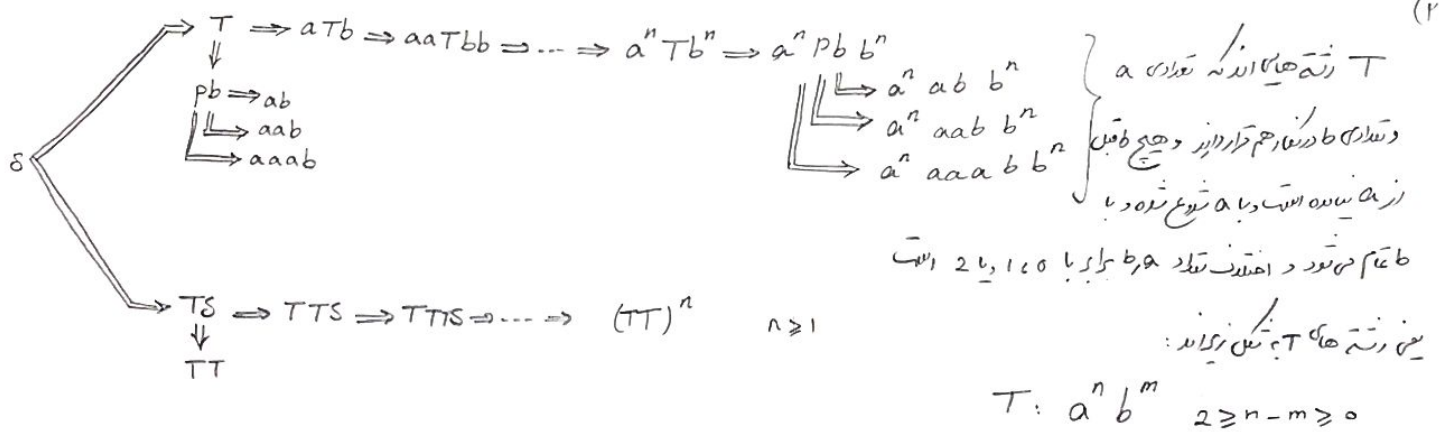 ۲)
S ⇒ T ⇒ aTb ⇒ aaTbb ⇒ ... ⇒ aⁿTbⁿ ⇒ aⁿ Pb bⁿ
⇒ aⁿ ab bⁿ
⇒ aⁿ aab bⁿ
⇒ aⁿ aaab bⁿ
T ⇒ Pb ⇒ ab
⇒ aab
⇒ aaab
T رشته هایی اند که تعدادی a
و تعدادی b در کنار هم قرار دارند و هیچ b قبل
از a نیامده است و با a شروع شده و با
b تمام می شود و اختلاف تعداد a,b برابر با 0 ، 1 و یا 2 است
یعنی رشته های T به شکل زیر اند :
T : aⁿ bᵐ 2 ≥ n - m ≥ 0
S ⇒ TS ⇒ TTS ⇒ TTTS ⇒ ... ⇒ (TT)ⁿ n ≥ 1
TS ⇒ TT